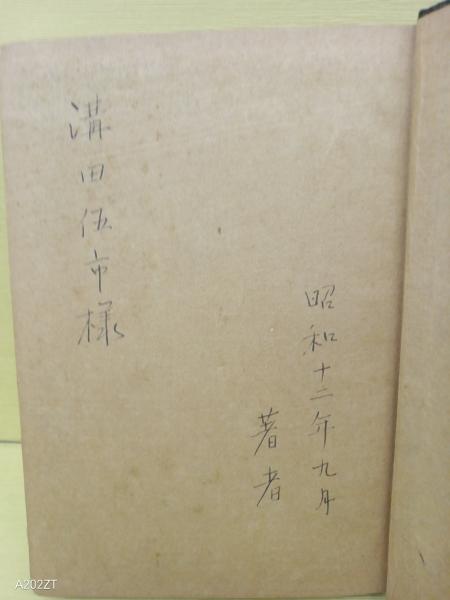 昭和十二年九月
著者
溝田伍市様
A202ZT